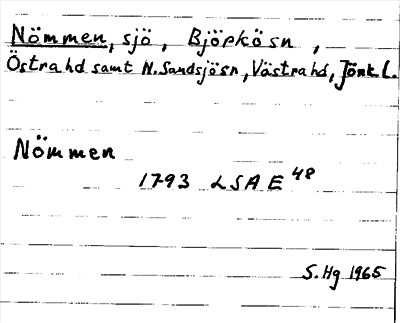 Nömmen, sjö, Björkösn,
Östrahd samt N. Sandsjösn, Västrahd, Jönk.l.
Nömmen
1793 LSA E 48
S. Hg 1965